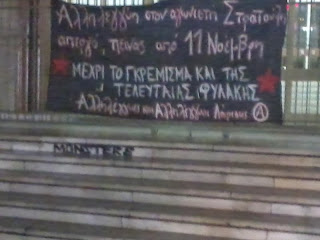 Αλληλεγγύη στον αγωνιστή Στρατούλη
απεργό πείνας από 11 Νοέμβρη
ΜΕΧΡΙ ΤΟ ΓΚΡΕΜΙΣΜΑ ΚΑΙ ΤΗΣ
ΤΕΛΕΥΤΑΙΑΣ ΦΥΛΑΚΗΣ
Αλληλέγγυοι και Αλληλέγγυες Λάρισας Ⓐ
MONSTERS